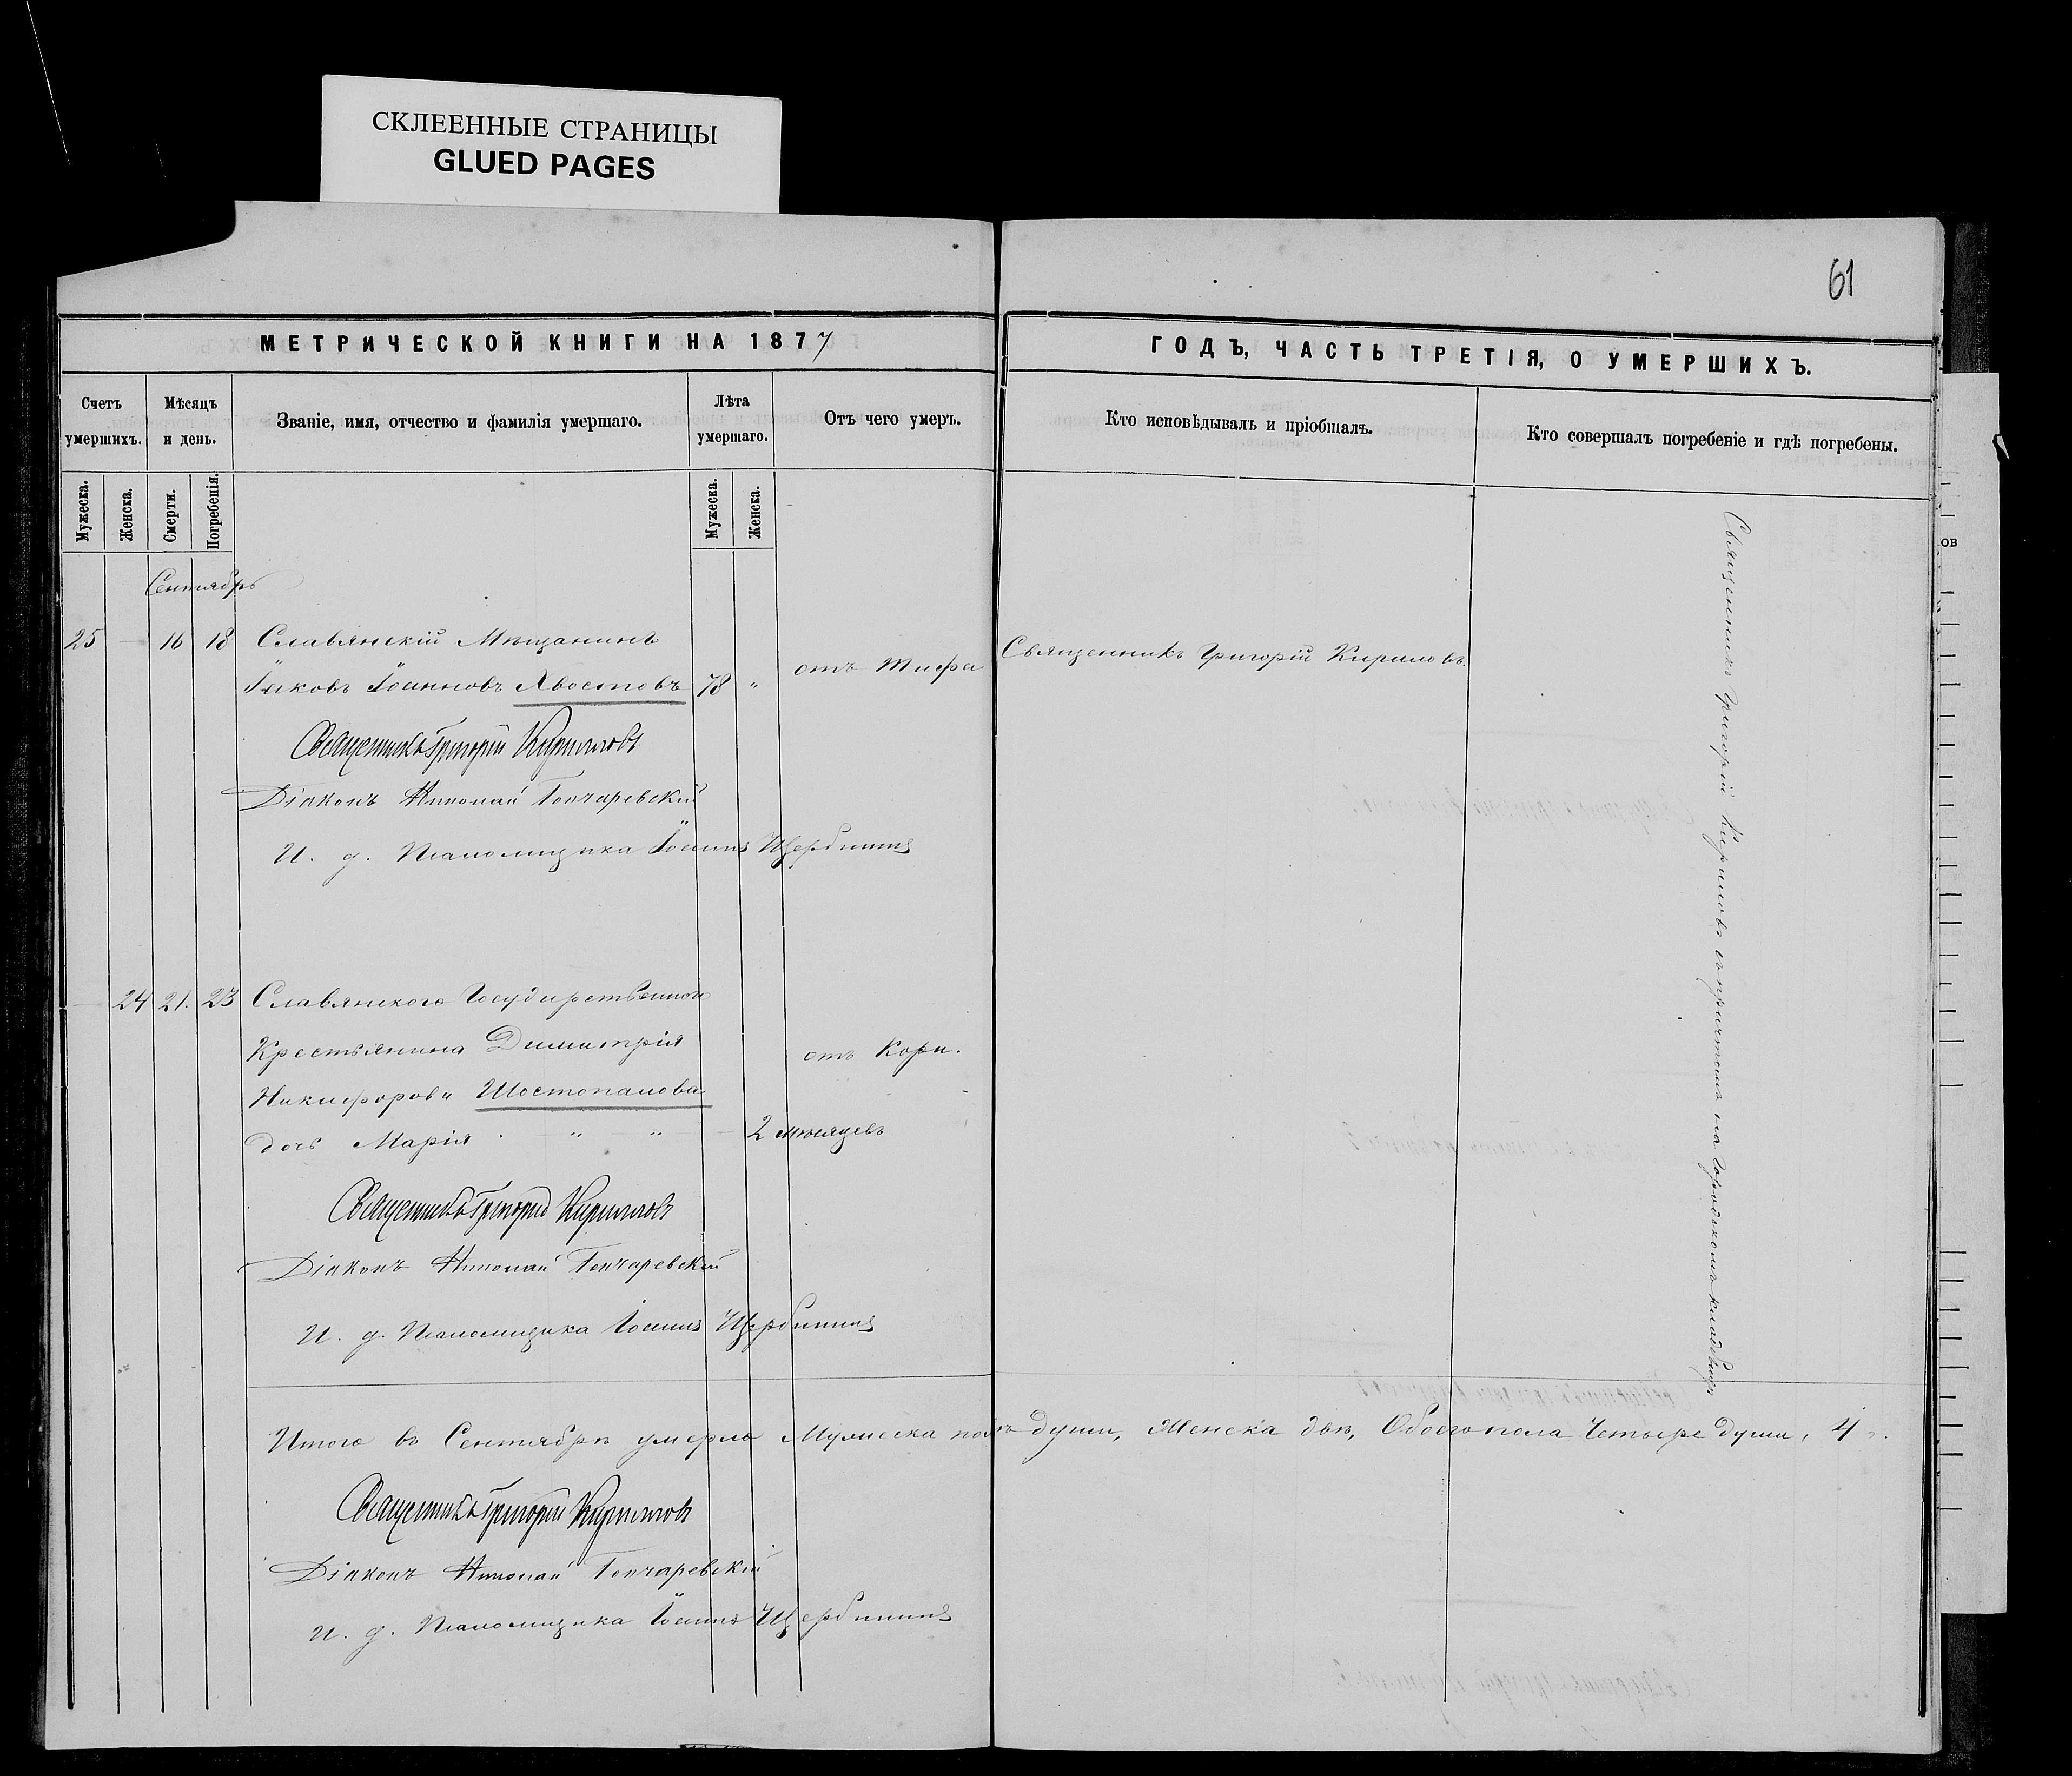 СКЛЕЕННЫЕ СТРАНИЦЫ
GLUED PAGES
61
МЕТРИЧЕСКОЙ КНИГИ НА 1877
ГОДЪ, ЧАСТЬ ТРЕТІЯ, О УМЕРШИХЪ.
Счетъ умершихъ.
Мѣсяцъ и день.
Званіе, имя, отчество и фамилія умершаго.
Лѣта умершаго.
Отъ чего умеръ.
Кто исповѣдывалъ и пріобщалъ.
Кто совершалъ погребеніе и гдѣ погребены.
Мужеска.
Женска.
Смерти.
Погребенія.
Мужеска.
Женска.
Сентябрь
25 — 16 18 Славянскій Мѣщанинъ
Іаковъ Іоанновъ Хвостовъ 78 „ отъ Тифа Священникъ Григорій Кириловъ
Священникъ Григорій Кирилловъ
Діаконъ Николай Гончаревскій
И. д. Псаломщика Іоаннъ Щербининъ
24 21. 23 Славянскаго Государственнаго
Крестьянина Димитрія отъ Кори.
Никифорова Шостопалова
дочь Марія „ — „ — 2 мѣсяцевъ
Священникъ Григорій Кирилловъ
Діаконъ Николай Гончаревскій
И. д. Псаломщика Іоаннъ Щербининъ
Священникъ Григорій Кириловъ съ причтомъ на городскомъ кладбищѣ
Итого въ Сентябрѣ умерло Мужеска пола двѣ души, Женска двѣ, Обоего пола Четыре души, 4.
Священникъ Григорій Кирилловъ
Діаконъ Николай Гончаревскій
И. д. Псаломщика Іоаннъ Щербининъ
ов